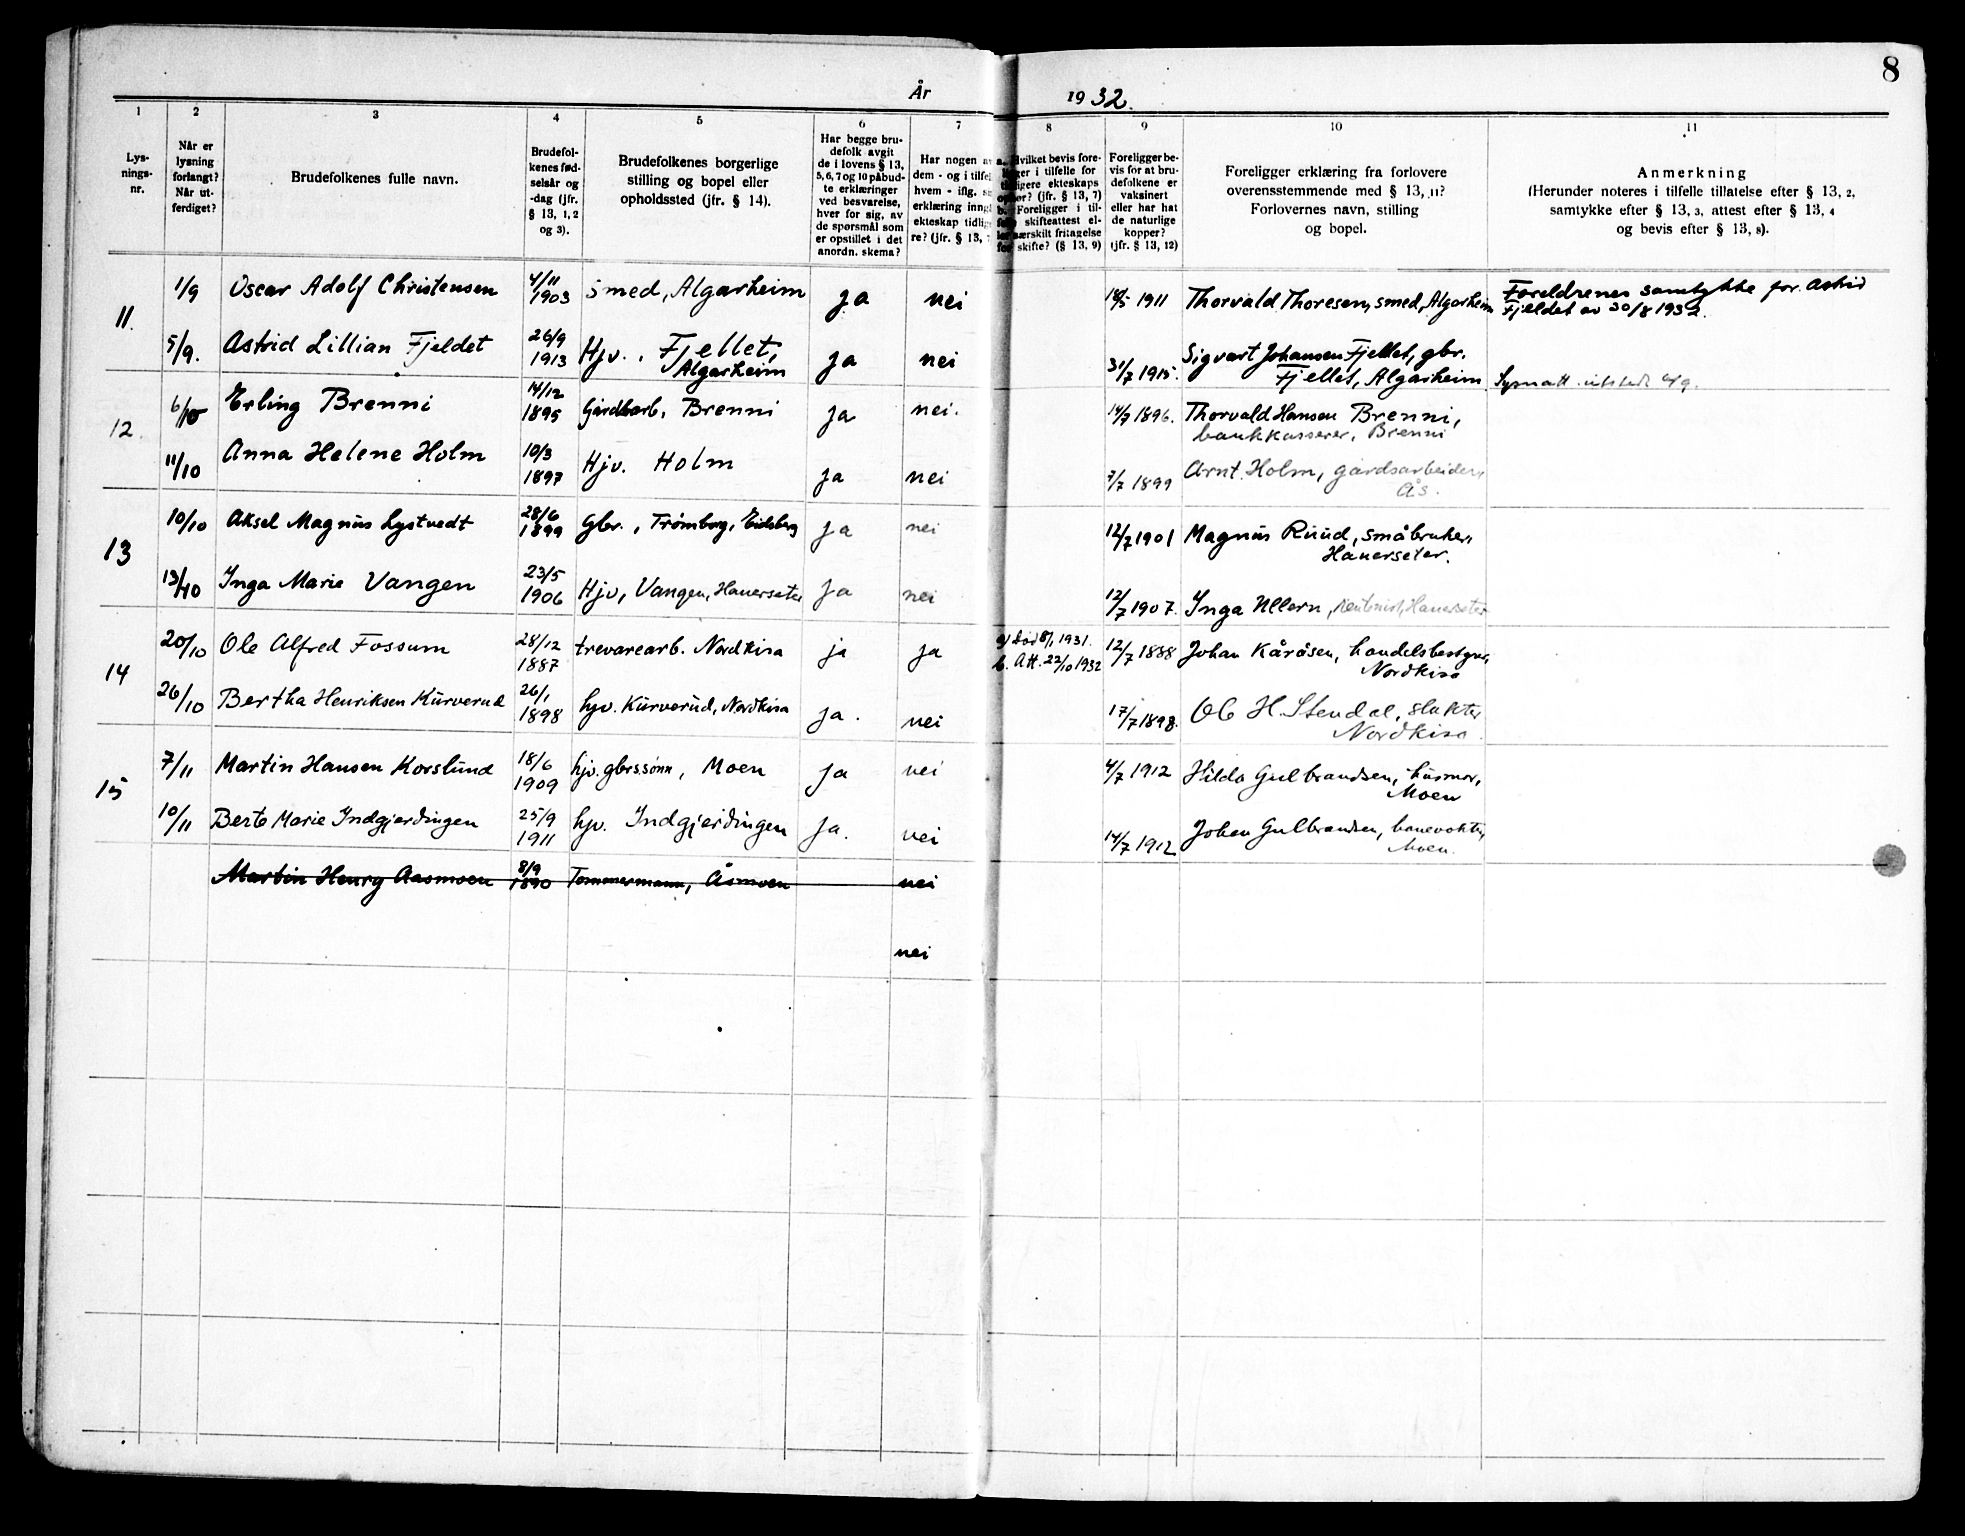 8
År 1932.
1 2 3 4 5 6 7 8 9 10 11
Lys-
nings-
nr.
Når er
lysning
forlangt?
Når ut-
ferdiget?
Brudefolkenes fulle navn.
Brudefol-
kenes fød-
selsår og
-dag (jfr.
§ 13, 1, 2
og 3).
Brudefolkenes borgerlige
stilling og bopel eller
opholdssted (jfr. § 14).
Har begge bru-
defolk avgit
de i lovens § 13,
5, 6, 7 og 10 påbud-
te erklæringer
ved besvarelse,
hver for sig, av
de spørsmål som
er opstillet i det
anordn. skema?
Har nogen av
dem - og i tilfel
hvem - iflg.
erklæring inng
ekteskap tidlig
re? (jfr. § 13,
a. Hvilket bevis fore-
ligger i tilfelle for
tidligere ekteskaps
ophør? (jfr. § 13, 7)
b. Foreligger i til-
felle skifteattest el-
ler særskilt fritagelse
for skifte? (§ 13, 9)
Foreligger be-
vis for at bru-
defolkene er
vaksinert
eller har hat
de naturlige
kopper?
(jfr. § 13, 12)
Foreligger erklæring fra forlovere
overensstemmende med § 13, 11?
Forlovernes navn, stilling
og bopel.
Anmerkning
(Herunder noteres i tilfelle tillatelse efter § 13, 2,
samtykke efter § 13, 3, attest efter § 13, 4
og bevis efter § 13, 8).
11. 1/9 Oscar Adolf Christensen 4/11 1903 Smed, Algarheim ja nei 1911 Thorvald Thoresen, smed, Algarheim Foreldrenes samtykke for Astrid
Fjeldet av 30/8 1932.
5/9. Astrid Lillian Fjeldet 26/9 1913 Hjv., Fjellet, ja nei 31/7 1915. Sigvart Johansen Fjellet, gbr.
Algarheim Fjellet, Algarheim
12. 6/10 Erling Brenni 14/12 1895 Gårdbarb, Brenni ja nei. 14/7 1896. Thorvald Hansen Brenni,
bankkasserer, Brenni
11/10 Anna Helene Holm 10/3 1897 Hjv. Holm ja nei 7/7 1899 Arnt Holm, gårdsarbeider,
Ås.
13 10/10 Aksel Magnus Lystvedt 28/6 1899 Gbr., Trømborg, Eidsberg ja nei 12/7 1901 Magnus Ruud, småbruker,
Hauerseter.
13/10 Inga Marie Vangen 23/5 1906 Hjv, Vangen, Hauerseter ja nei 12/7 1907. Inga Ullern, Hauerseter
14 20/10 Ole Alfred Fossum 28/12 1887 trevarearb. Nordkisa ja ja a) død 8/1 1931. 12/7 1888 Johan Kåråsen, handelsbestyrer,
b. Att. 22/10 1932 Nordkisa
26/10 Bertha Henriksen Kurverud 26/1 1898 hjv. Kurverud, Nordkisa ja. nei 17/7 1898. Ole H. Stendal, slakter
Nordkisa.
15 7/11 Martin Hansen Korslund 18/6 1909 hjv. gbrs.sønn, Moen ja nei 4/7 1912 Hilda Gulbrandsen, husmor,
Moen
10/11 Berte Marie Indgjerdingen 25/9 1911 hjv. Indgjerdingen ja. nei 14/7 1912 Johan Gulbrandsen, banevokter,
Moen.
Martin Henry Aasmoen 8/9 1890 Tømmermann, Åsmoen nei
nei